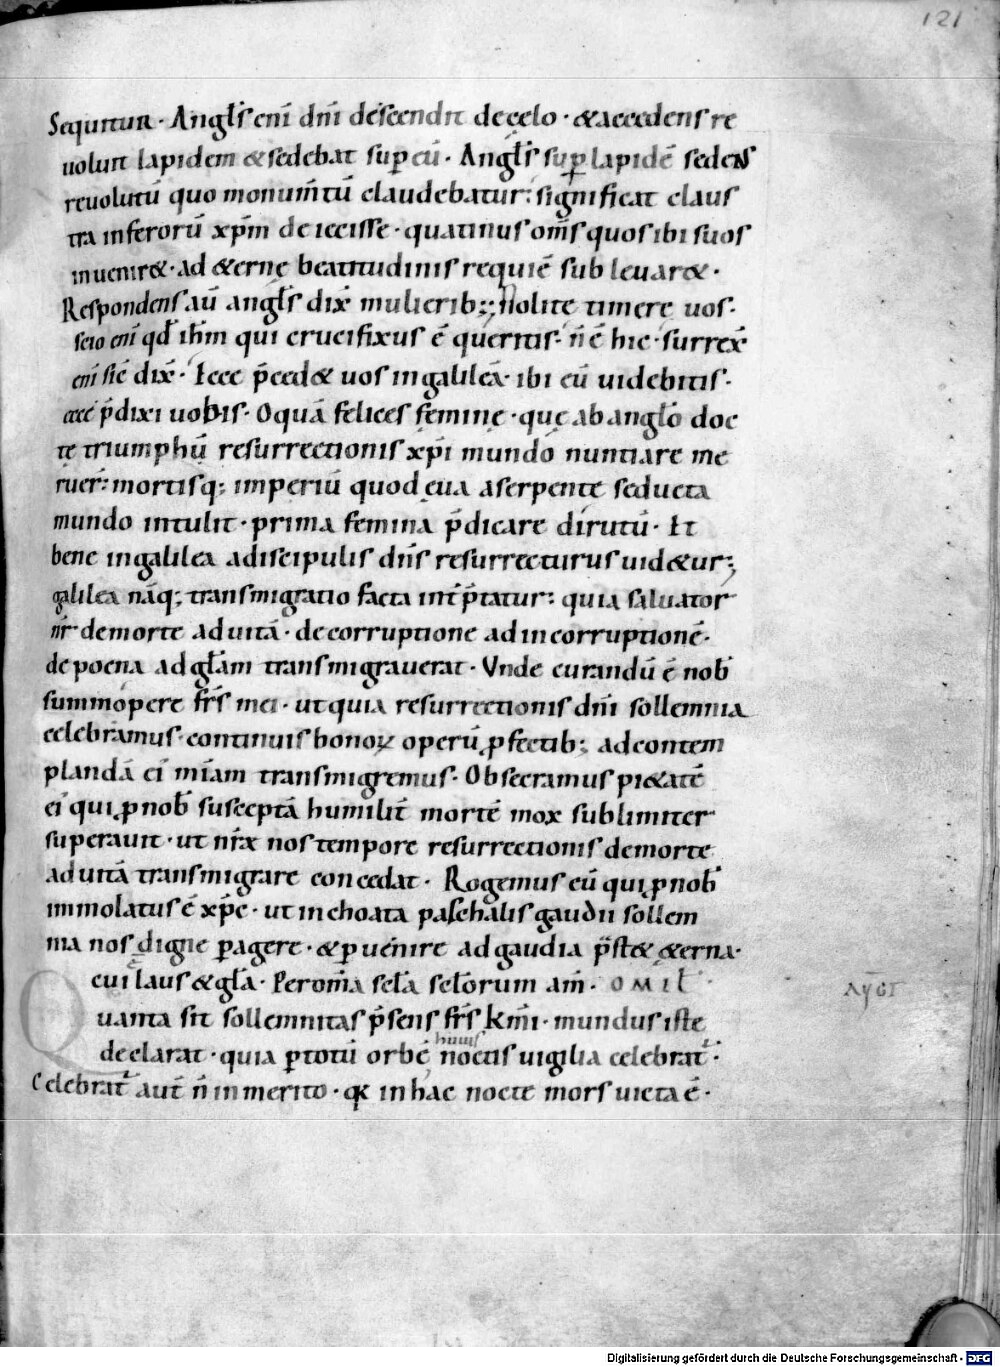 121
Sequitur · Angl̄s eni͂ dn̄i descendit de cęlo · & accedens re
uoluit lapidem & sedebat sup eū · Angl̄s sup lapidē sedens
reuolutū quo monum̄tū claudebatur: significat claus
tra inferorū xp̄m deiecisse · quatinus om̄s quos ibi suos
inuenir& · ad &ernę beatitudinis requiē subleuar& ·
Respondens aū angl̄s dix̄ mulierib; : Nolite timere uos ·
scio eni͂ qd̄ ih̄m qui crucifixus ē queritis · n̄ ē hic · surrex̄
eni͂ sic̄ dix̄ · Ecce p̄ced& uos in galileā · ibi eū uidebitis ·
ecce p̄dixi uobis · O quā felices feminę · quę ab anglo̅ doc
tę triumphū resurrectionis xp̄i mundo nuntiare me
ruer̄: mortisq; imperiū quod eua a serpente seducta
mundo intulit · prima femina p̄dicare dirutū · Et
bene in galilea a discipulis dn̄s resurrecturus uid&ur;
galilea nāq; transmigratio facta int̄p̄tatur: quia saluator
nr̄ de morte ad uitā · de corruptione ad incorruptionē ·
de poena ad gl̄am transmigrauerat · Unde curandū ē nob̄
summopere fr̄s mei · ut quia resurrectionis dn̄i sollemnia
celebramus · continuis bonoꝝ operū ꝓfectib; ad contem
plandā ei᾽ mīam transmigremus · Obsecramus pi&atē
ei᾽ qui ꝓ nob̄ susceptā humilit̄ mortē mox sublimiter
superauit · ut nr̄æ nos tempore resurrectionis de morte
ad uitā transmigrare concedat · Rogemus eū qui ꝓ nob̄
immolatus ē xp̄c · ut inchoata paschalis gaudii sollem
nia nos digne ꝑagere · & ꝑuenire ad gaudia p̄st& &erna ·
cui ē laus & gl̄a · Per om̄ia scl̄a scl̄orum am̄ · OMIL̄
Quanta sit sollemnitas p̄sens fr̄s km̄i · mundus iste
declarat · quia ꝑ totū orbē huius noctis uigilia celebrat᷑ ·
Celebrat᷑ aut̄ n̄ inmerito · qꝛ in hac nocte mors uicta ē ·
Digitalisierung gefördert durch die Deutsche Forschungsgemeinschaft - DFG